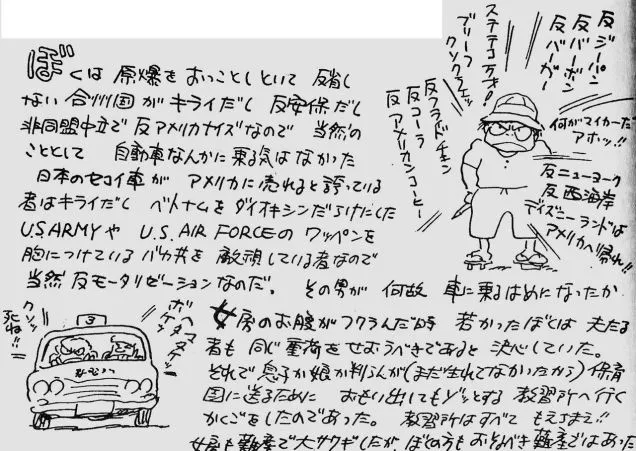 反ジーパン
反バーボン
反バーガー
ステテコステキ!
ブリーフ
クソクラエッ
反フライドチキン
反コーラ
反アメリカンコーヒー
何がマイカーだ
アホッ!!
反ニューヨーク
反西海岸
ディズニーランドは
アメリカへ帰れ!!
ぼくは 原爆をおっことしといて 反省し
ない合州国がキライだし 反安保だし
非同盟中立で反アメリカナイズなので 当然の
こととして 自動車なんかに乗る気はなかった
日本のセコイ車が アメリカに売れると誇っている
者はキライだし ベトナムをダイオキシンだらけにした
U.S.ARMYや U.S.AIR FORCEの ワッペンを
胸につけている バカ共を 敵視している者なので
当然 反モータリゼーションなのだ。 その男が 何故 車に乗るはめになったか
クソッ
死ね!!
ボケ
ヘマ
タゲ
3
女房のお腹がフクランだ時 若かったぼくは 夫たる
者も 同じ重荷をせおうべきであると 決心していた。
それで息子か娘か判らんが(まだ生れてなかったから)保育
園に送るために おもい出してもゾッとする 教習所へ行く
かくごをしたのであった。 教習所はすべて もえちまえ!!
女房も難産で大サワギしたが、ぼくの方もおどろくべき難産ではあった